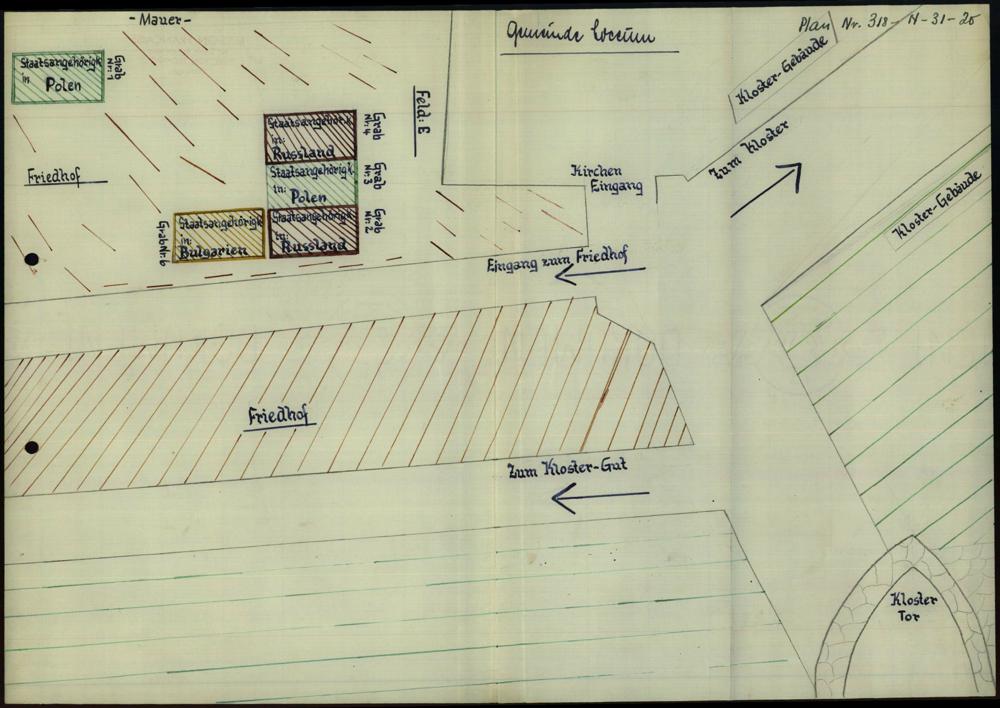 - Mauer -
Gemeinde Loccum
Plan Nr. 318 - N - 31 - 25
Kloster-Gebäude
Staatsangehörigk.
in
Polen
Grab
Nr: 1
Feld: E
Staatsangehörk.
in:
Russland
Grab
Nr: 4
Staatsangehörigk.
in:
Polen
Grab
Nr: 3
Staatsangehörigk
in:
Russland
Grab
Nr: 2
Staatsangehörigk
in:
Bulgarien
Grab Nr: 6
Friedhof
Kirchen
Eingang
Zum Kloster
Kloster-Gebäude
Eingang zum Friedhof
Friedhof
Zum Kloster-Gut
Kloster
Tor